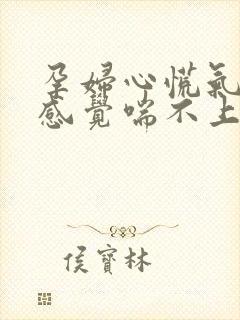 孕婦心慌氣
感覺喘不上
侯寶林